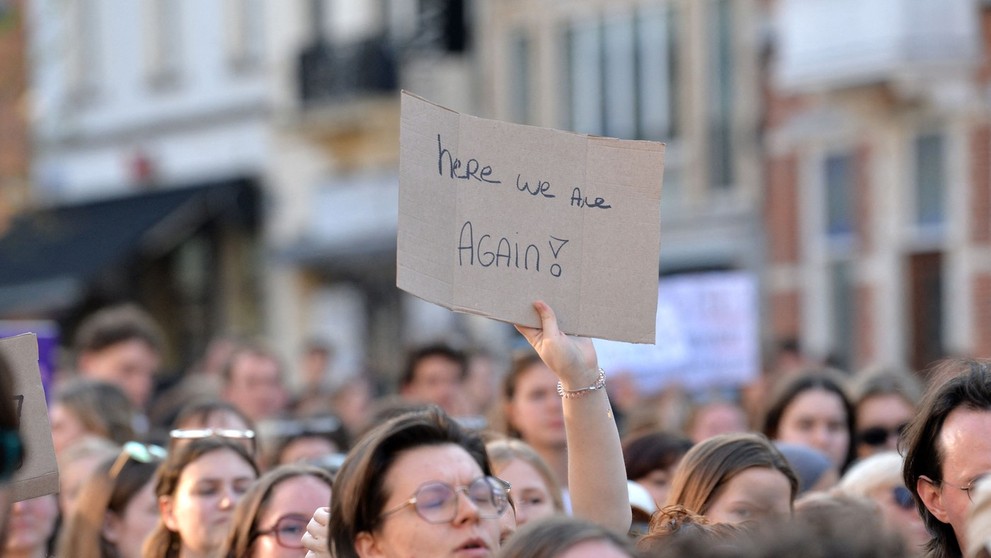 here we are
AGAIN!